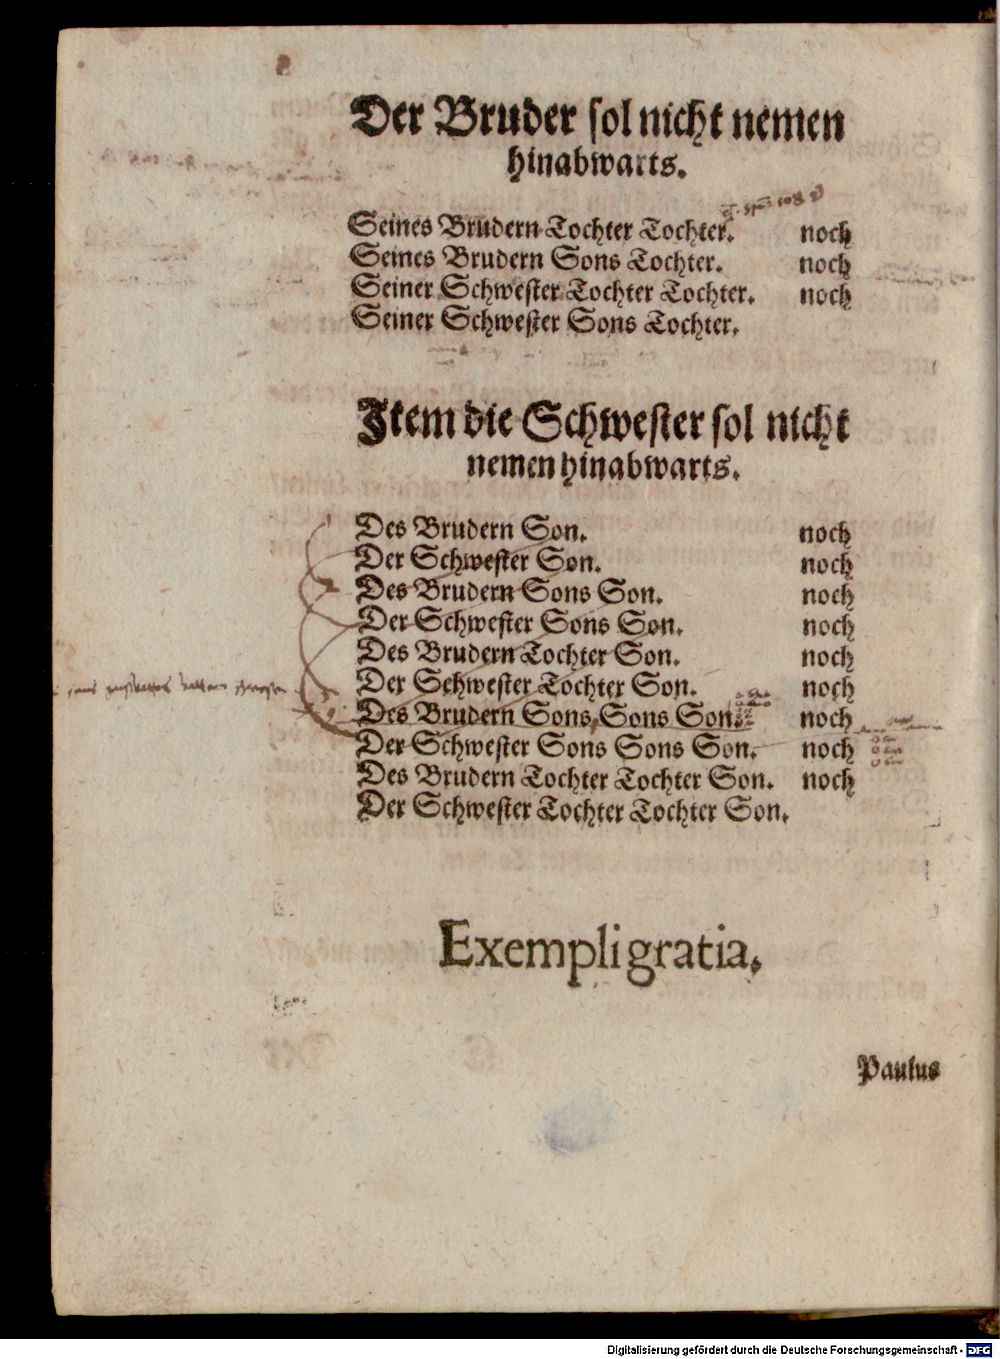 Der Bruder sol nicht nemen
hinabwarts.
Seines Brudern Tochter Tochter. noch
Seines Brudern Sons Tochter. noch
Seiner Schwester Tochter Tochter. noch
Seiner Schwester Sons Tochter.
Item die Schwester sol nicht
nemen hinabwarts.
Des Brudern Son. noch
Der Schwester Son. noch
Des Brudern Sons Son. noch
Der Schwester Sons Son. noch
Des Brudern Tochter Son. noch
Der Schwester Tochter Son. noch
Des Brudern Sons Sons Son. noch
Der Schwester Sons Sons Son. noch
Des Brudern Tochter Tochter Son. noch
Der Schwester Tochter Tochter Son.
Exempli gratia.
Paulus
Digitalisierung gefördert durch die Deutsche Forschungsgemeinschaft - DFG